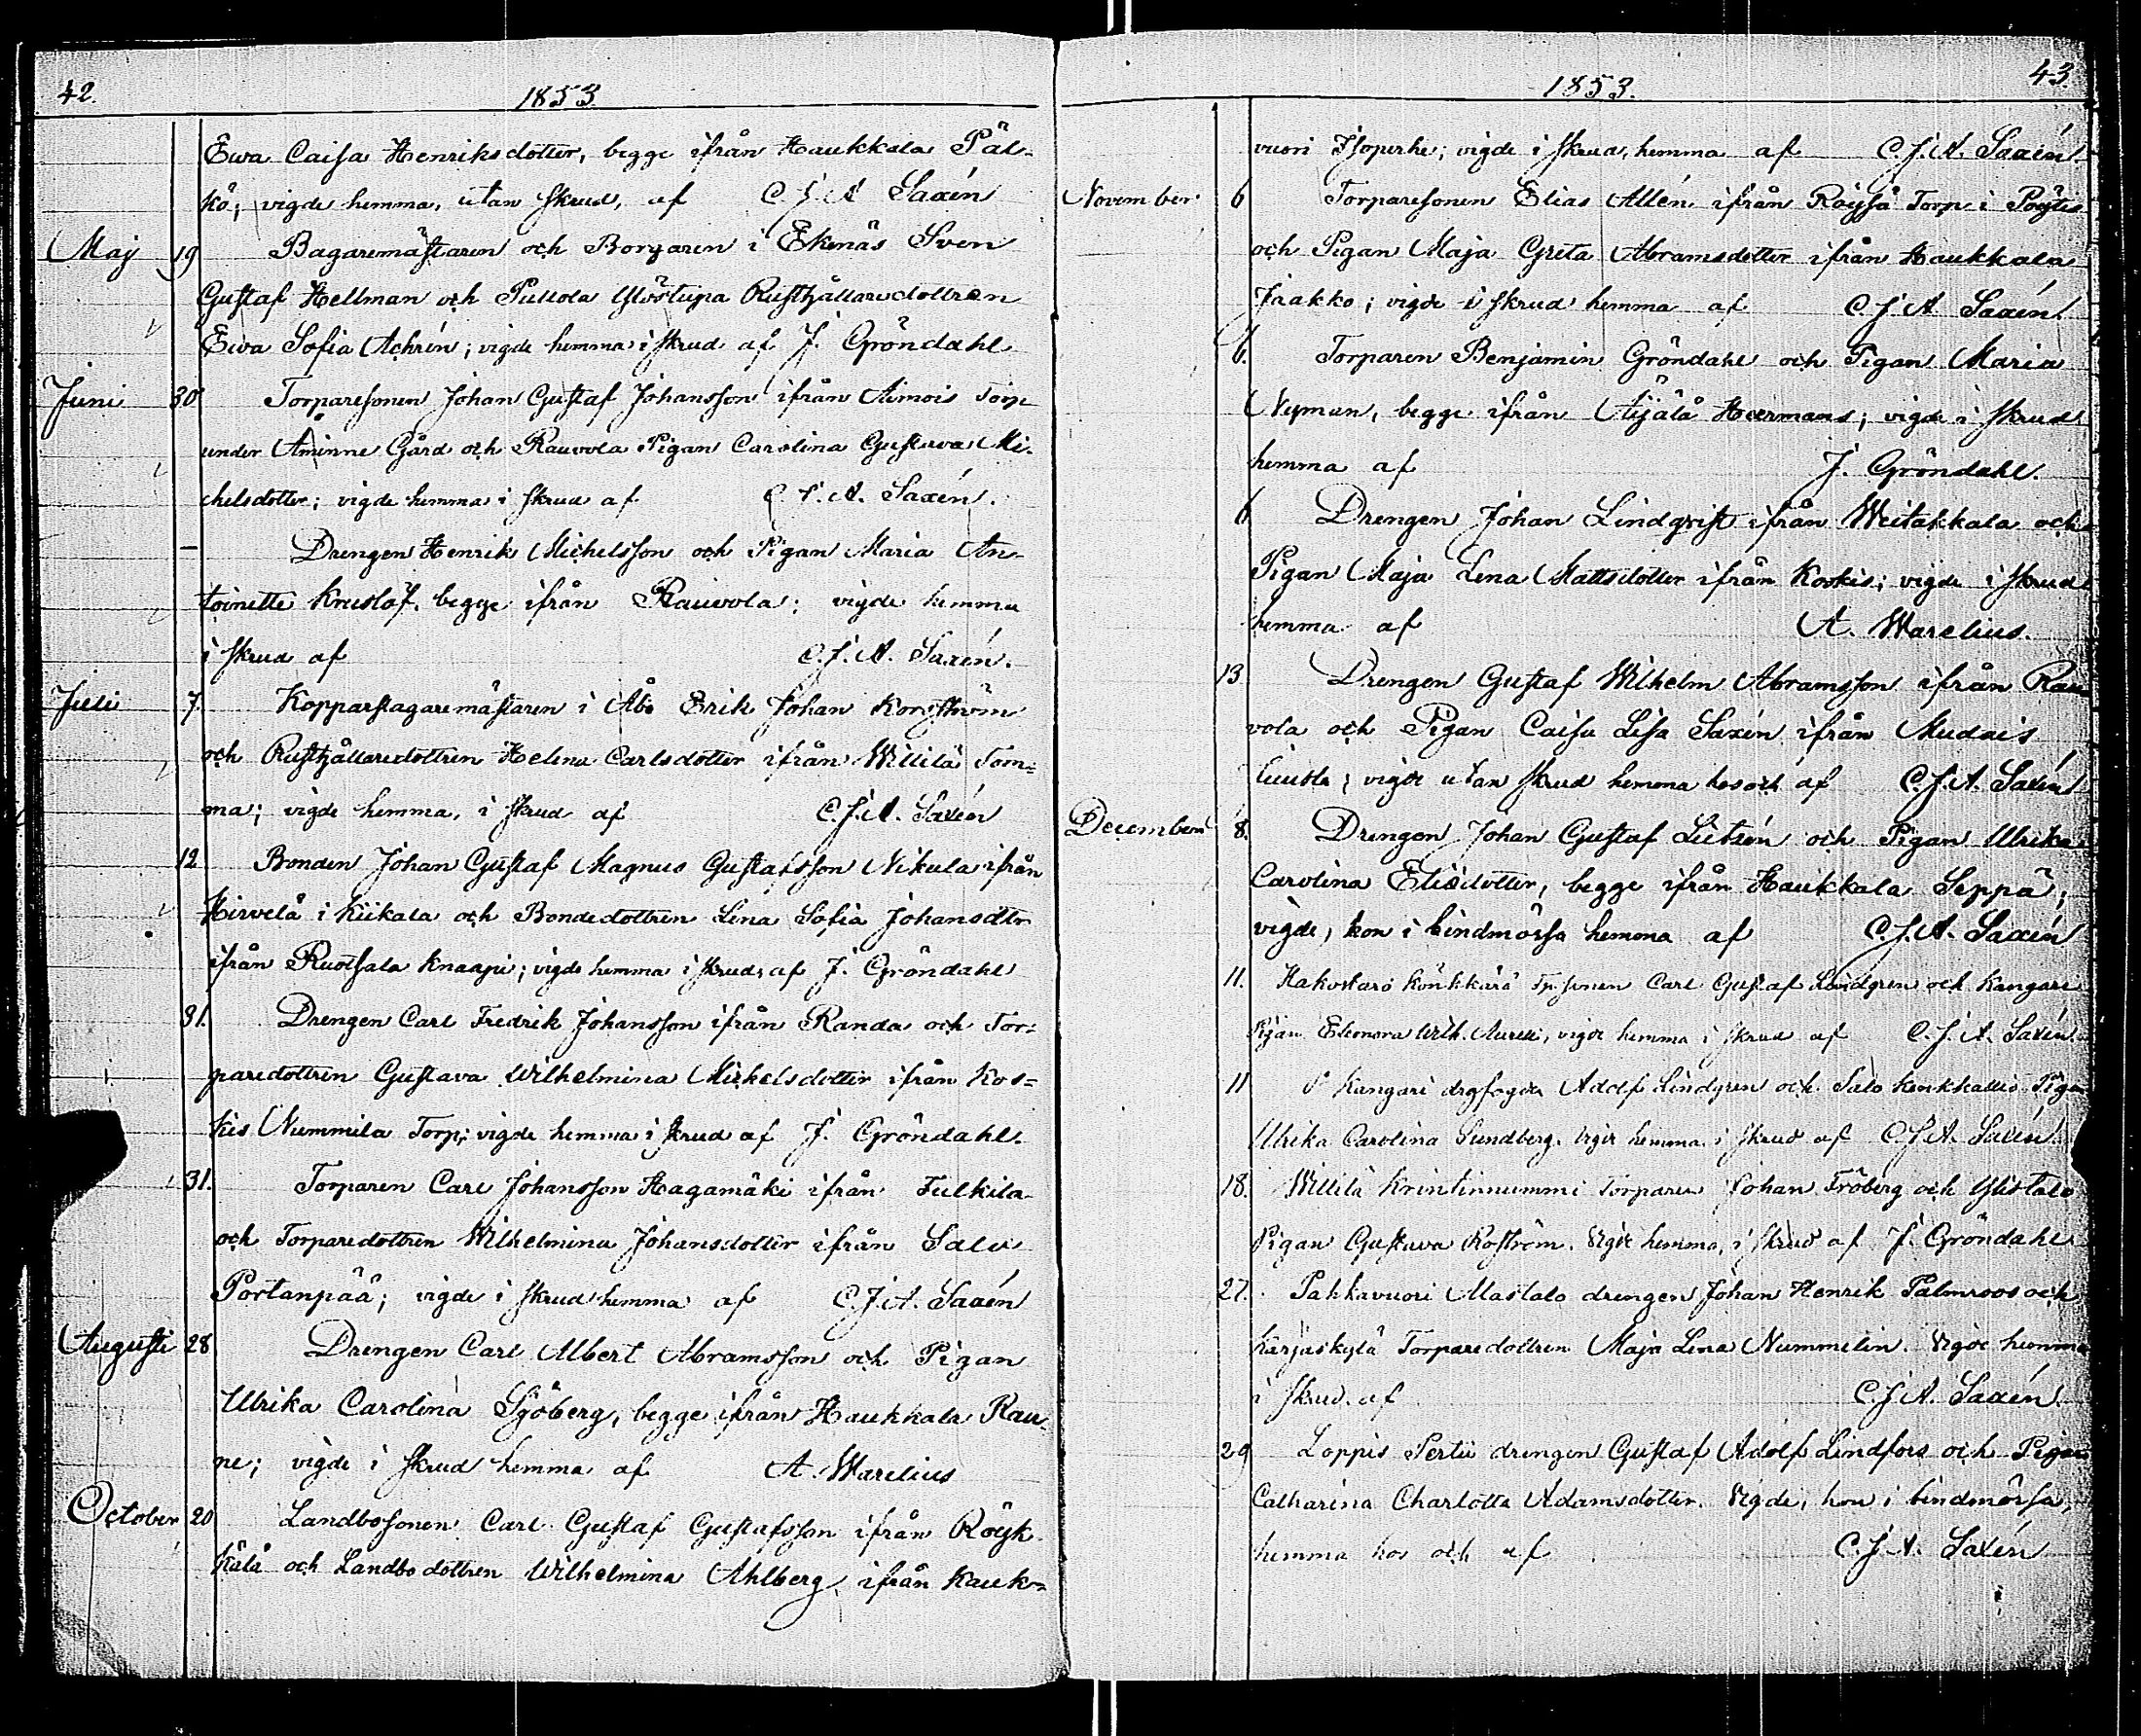 42.
1853.
Ewa Caisa Henriksdotter, begge ifrån Haukkala Päl-
kö; vigde hemma, utan skrud, af C. J. A. Saxén
Maj 19 Bagaremästaren och Borgaren i Ekenäs Sven
Gustaf Hellman och Pullola Ylöstupa Rusthållaredottren
Ewa Sofia Achrén; vigde hemma i skrud af J. Gröndahl
Juni 30 Torparesonen Johan Gustaf Johansson ifrån Aimois Torp
under Åminne Gård och Rauvola Pigan Carolina Gustava Mi-
chelsdotter; vigde hemma i skrud af C. J. A. Saxén.
— Drengen Henrik Michelsson och Pigan Maria An-
toinette Krusløf, begge ifrån Rauvola; vigde hemma
i skrud af C. J. A. Saxén.
Juli 7. Kopparslagaremästaren i Åbo Erik Johan Korsström
och Rusthållaredottren Helena Carlsdotter ifrån Willilä Tom-
ma; vigde hemma, i skrud af C. J. A. Saxén
12 Bonden Johan Gustaf Magnus Gustafsson Nikula ifrån
Hirvelä i Kiikala och Bondedottren Lena Sofia Johansdtr
ifrån Ruotsala Knaapi; vigde hemma i skrud af J. Gröndahl
31. Drengen Carl Fredrik Johansson ifrån Randa och Tor-
paredottren Gustava Wilhelmina Michelsdotter ifrån Kos-
kis Nummila Torp; vigde hemma i skrud af J. Gröndahl.
31. Torparen Carl Johansson Hagamäki ifrån Fulkila
och Torparedottren Wilhelmina Johansdotter ifrån Salo
Portanpää; vigde i skrud hemma af C. J. A. Saxén
Augusti 28 Drengen Carl Albert Abramsson och Pigan
Ulrika Carolina Sjöberg, begge ifrån Haukkala Rau-
ne; vigde i skrud hemma af A. Warelius
October 20 Landbosonen Carl Gustaf Gustafsson ifrån Röyk-
kälä och Landbodottren Wilhelmina Ahlberg ifrån Kauk-
1853.
43.
vuori Isoperhe; vigde i skrud, hemma af C. J. A. Saxén
November 6 Torparesonen Elias Allén ifrån Röyssä Torp i Pöytis
och Pigan Maja Greta Abramsdotter ifrån Haukkala
Jaakko; vigde i skrud hemma af C. J. A. Saxén.
6. Torparen Benjamin Gröndahl och Pigan Maria
Nyman, begge ifrån Äijälä Heermans; vigde i skrud
hemma af J. Gröndahl.
6 Drengen Johan Lindqvist ifrån Weitakkala och
Pigan Maja Lena Mattsdotter ifrån Koskis; vigde i skrud
hemma af A. Warelius.
13 Drengen Gustaf Wilhelm Abramsson ifrån Rau
vola och Pigan Caisa Lisa Saxén ifrån Mudais
vigde utan skrud hemma hos och af C. J. A. Saxén
December 8. Drengen Johan Gustaf Lietzén och Pigan Ulrika
Carolina Elisdotter, begge ifrån Haukkala Seppä;
vigde, hon i bindmössa hemma af C. J. A. Saxén
11. Hakostaro Könkkärä Tp.sonen Carl Gustaf Lindgren och Kangari
Pigan Eleonora Wilh. Aurell, vigde hemma i skrud af C. J. A. Saxén.
11 Kangari drgfogde Adolf Lindgren och Salo Kenkkallio Pigan
Ulrika Carolina Sundberg. Vigde hemma i skrud af C. J. A. Saxén.
18. Willilä Krintinnummi Torparen Johan Fröberg och Ylistalo
Pigan Gustava Roström. Vigde hemma, i skrud af J. Gröndahl
27. Pahkavuori Mastalo drengen Johan Henrik Palmroos och
Karjaskylä Torparedottren Maja Lena Nummelin. Vigde hemma
i skrud af C. J. A. Saxén.
29 Loppis Perttu drengen Gustaf Adolf Lindfors och Pigan
Catharina Charlotta Adamsdotter. Vigde, hon i bindmössa,
hemma hos och af C. J. A. Saxén